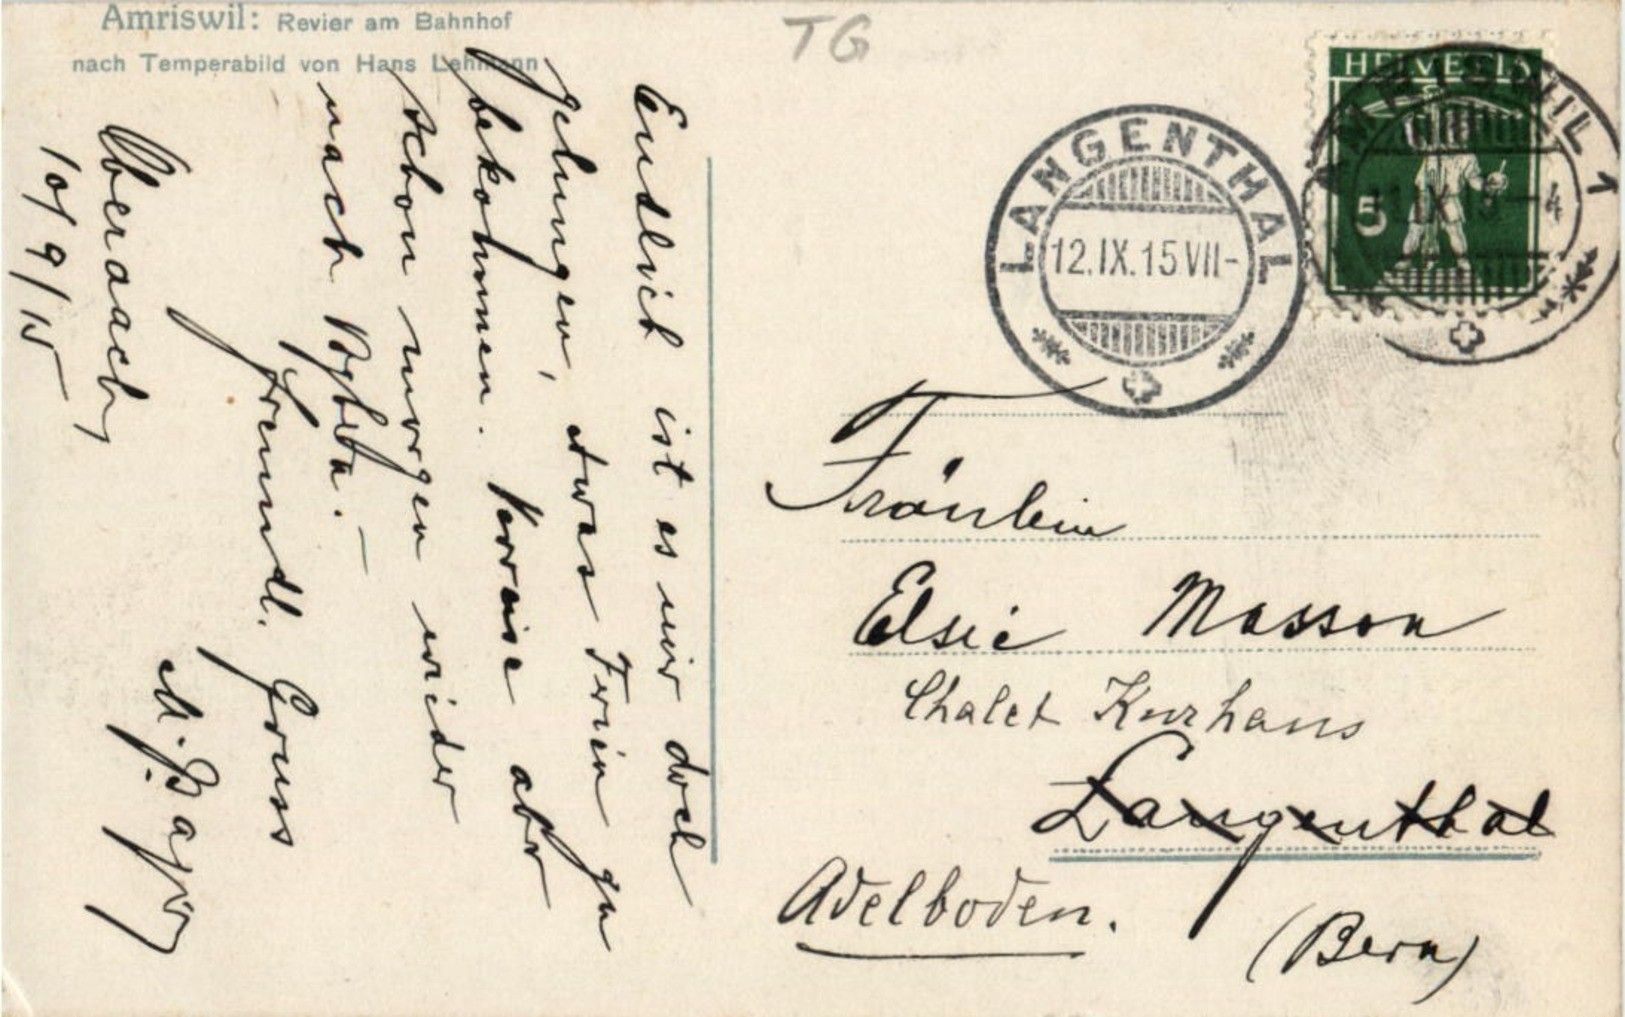 Amriswil: Revier am Bahnhof
nach Temperabild von Hans Lehmann
TG
HELVETIA
5
AMRISWIL 1
11.IX.15-4
LANGENTHAL
12.IX.15.VII-
Oberaach
10/9/15
Endlich ist es mir doch
gelungen, etwas Ferien zu
bekommen. Verreise aber
schon morgen wieder
nach
freundl. Gruss
Fräulein
Elsie Masson
Chalet Kurhaus
Langenthal
Adelboden.
(Bern)